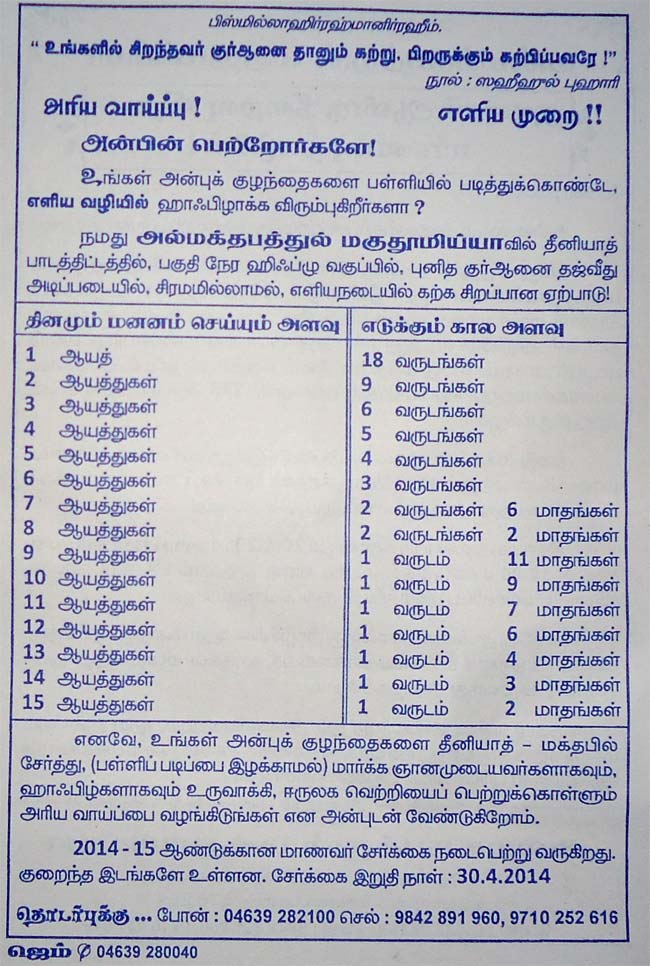 பிஸ்மில்லாஹிர்ரஹ்மானிர்ரஹீம்.
“ உங்களில் சிறந்தவர் குர்ஆனை தானும் கற்று, பிறருக்கும் கற்பிப்பவரே !”
நூல் : ஸஹீஹுல் புஹாரி
அரிய வாய்ப்பு ! எளிய முறை !!
அன்பின் பெற்றோர்களே!
உங்கள் அன்புக் குழந்தைகளை பள்ளியில் படித்துக்கொண்டே,
எளிய வழியில் ஹாஃபிழாக்க விரும்புகிறீர்களா ?
நமது அல்மக்தபத்துல் மகுதூமிய்யாவில் தீனியாத்
பாடத்திட்டத்தில், பகுதி நேர ஹிஃப்ழு வகுப்பில், புனித குர்ஆனை தஜ்வீது
அடிப்படையில், சிரமமில்லாமல், எளியநடையில் கற்க சிறப்பான ஏற்பாடு!
தினமும் மனனம் செய்யும் அளவு எடுக்கும் கால அளவு
1 ஆயத் 18 வருடங்கள்
2 ஆயத்துகள் 9 வருடங்கள்
3 ஆயத்துகள் 6 வருடங்கள்
4 ஆயத்துகள் 5 வருடங்கள்
5 ஆயத்துகள் 4 வருடங்கள்
6 ஆயத்துகள் 3 வருடங்கள்
7 ஆயத்துகள் 2 வருடங்கள் 6 மாதங்கள்
8 ஆயத்துகள் 2 வருடங்கள் 2 மாதங்கள்
9 ஆயத்துகள் 1 வருடம் 11 மாதங்கள்
10 ஆயத்துகள் 1 வருடம் 9 மாதங்கள்
11 ஆயத்துகள் 1 வருடம் 7 மாதங்கள்
12 ஆயத்துகள் 1 வருடம் 6 மாதங்கள்
13 ஆயத்துகள் 1 வருடம் 4 மாதங்கள்
14 ஆயத்துகள் 1 வருடம் 3 மாதங்கள்
15 ஆயத்துகள் 1 வருடம் 2 மாதங்கள்
எனவே, உங்கள் அன்புக் குழந்தைகளை தீனியாத் – மக்தபில்
சேர்த்து, (பள்ளிப் படிப்பை இழக்காமல்) மார்க்க ஞானமுடையவர்களாகவும்,
ஹாஃபிழ்களாகவும் உருவாக்கி, ஈருலக வெற்றியைப் பெற்றுக்கொள்ளும்
அரிய வாய்ப்பை வழங்கிடுங்கள் என அன்புடன் வேண்டுகிறோம்.
2014 - 15 ஆண்டுக்கான மாணவர் சேர்க்கை நடைபெற்று வருகிறது.
குறைந்த இடங்களே உள்ளன. சேர்க்கை இறுதி நாள் : 30.4.2014
தொடர்புக்கு ... போன் : 04639 282100 செல் : 9842 891 960, 9710 252 616
ஜெம் ✆ 04639 280040